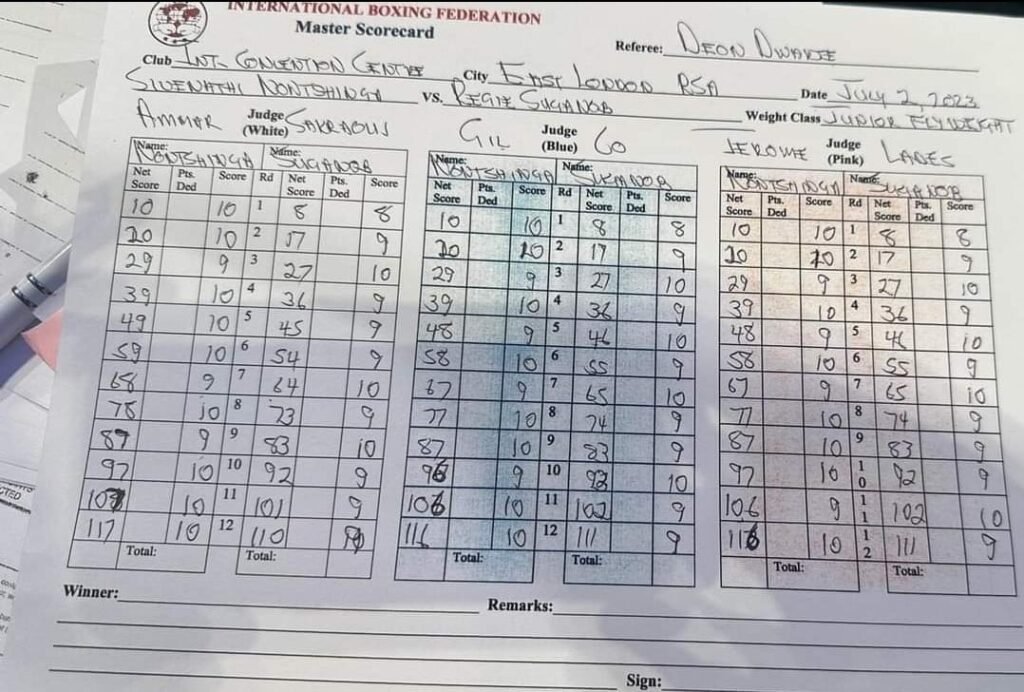 INTERNATIONAL BOXING FEDERATION
Master Scorecard
Referee: DEON DWARTE
Club INT. CONVENTION CENTRE City EAST LONDON RSA Date JULY 2, 2023
SIVENATHI NONTSHINGA VS. REGIE SUGANOB Weight Class JUNIOR FLYWEIGHT
AMMAR Judge (White) SAKRAOUI GIL Judge (Blue) CO JEROME Judge (Pink) LADES
Name: NONTSHINGA Name: SUGANOB Name: NONTSHINGA Name: SUGANOB Name: NONTSHINGA Name: SUGANOB
Net Score Pts. Ded Score Rd Net Score Pts. Ded. Score Net Score Pts. Ded Score Rd Net Score Pts. Ded. Score Net Score Pts. Ded Score Rd Net Score Pts. Ded. Score
10 10 1 8 8 10 10 1 8 8 10 10 1 8 8
20 10 2 17 9 20 10 2 17 9 20 10 2 17 9
29 9 3 27 10 29 9 3 27 10 29 9 3 27 10
39 10 4 36 9 39 10 4 36 9 39 10 4 36 9
49 10 5 45 9 48 9 5 46 10 48 9 5 46 10
59 10 6 54 9 58 10 6 55 9 58 10 6 55 9
68 9 7 64 10 67 9 7 65 10 67 9 7 65 10
78 10 8 73 9 77 10 8 74 9 77 10 8 74 9
87 9 9 83 10 87 10 9 83 9 87 10 9 83 9
97 10 10 92 9 96 9 10 93 10 97 10 10 92 9
107 10 11 101 9 106 10 11 102 9 106 9 11 102 10
117 10 12 110 9 116 10 12 111 9 116 10 12 111 9
Total: Total: Total: Total: Total: Total:
Winner: Remarks:
Sign: